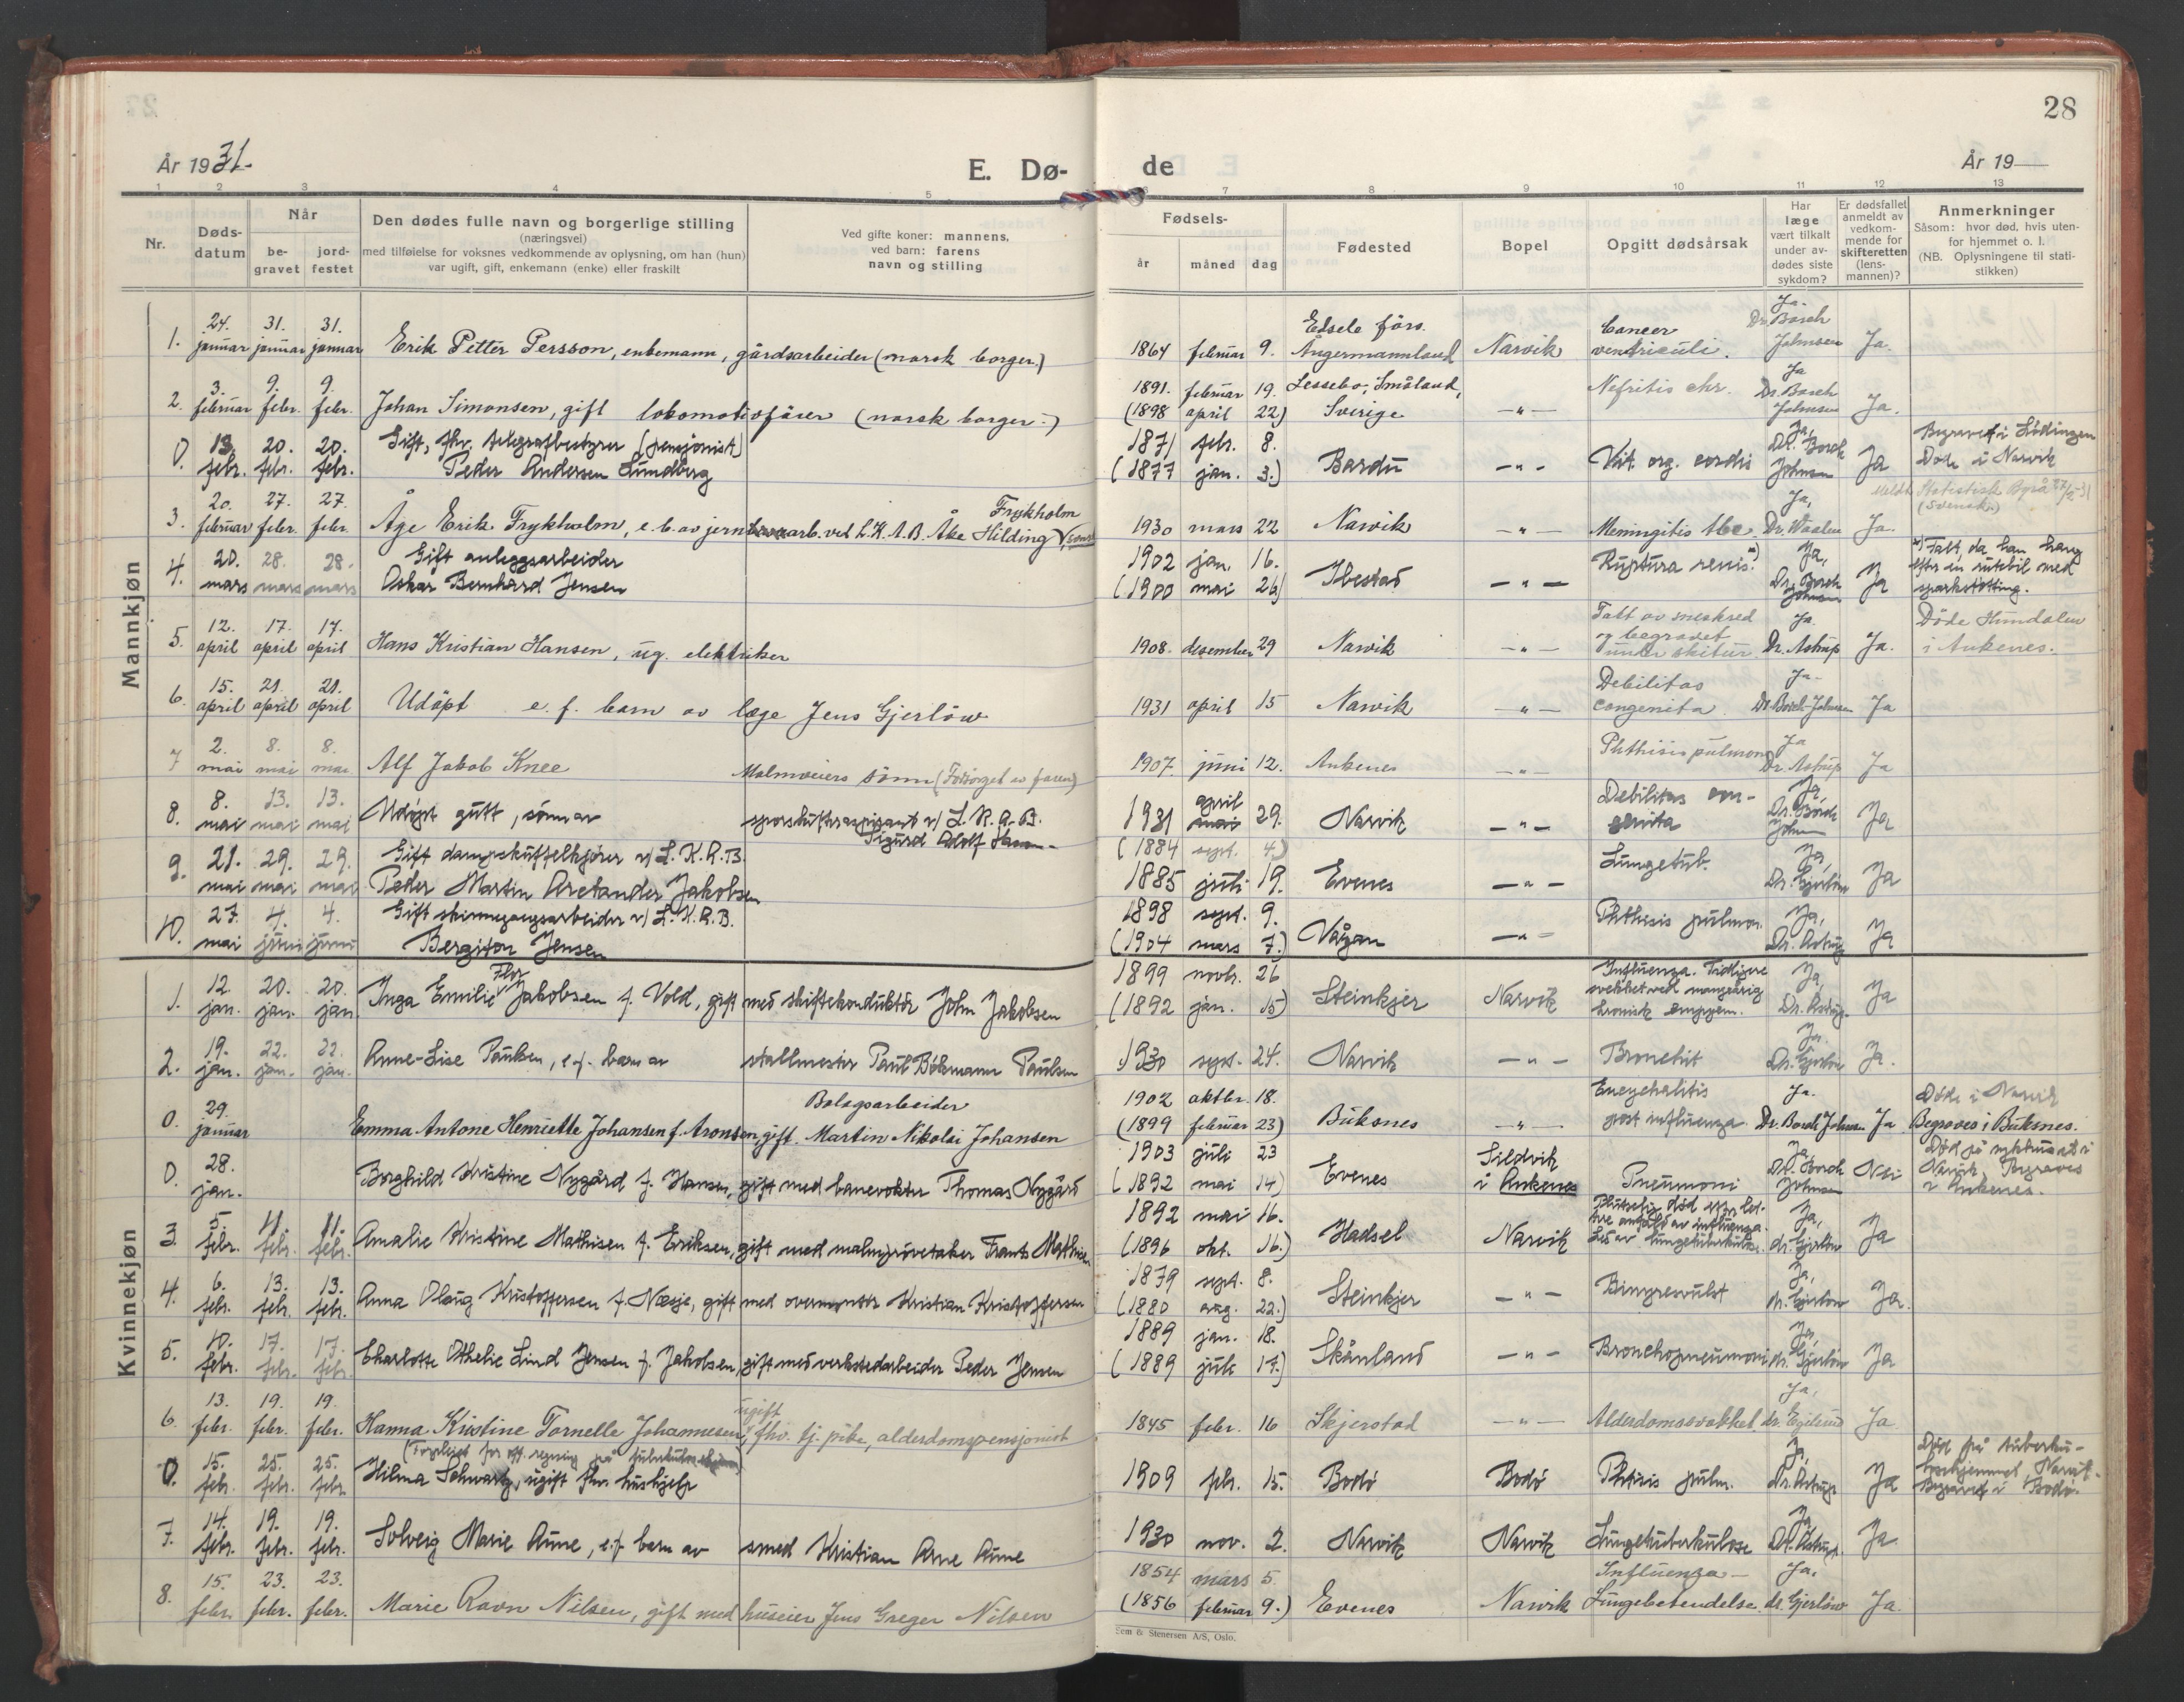 28
År 1931.
E. Dø-
de
År 19
1 2 3 4 5 6 7 8 9 10 11 12 13
Nr.
Døds-
datum
Når
be-
gravet
jord-
festet
Den dødes fulle navn og borgerlige stilling
(næringsvei)
med tilføielse for voksnes vedkommende av oplysning, om han (hun)
var ugift, gift, enkemann (enke) eller fraskilt
Ved gifte koner: mannens,
ved barn: farens
navn og stilling
Fødsels-
år måned dag
Fødested
Bopel
Opgitt dødsårsak
Har
læge
vært tilkalt
under av-
dødes siste
sykdom?
Er dødsfallet
anmeldt av
vedkom-
mende for
skifteretten
(lens-
mannen)?
Anmerkninger
Såsom: hvor død, hvis uten-
for hjemmet o. l.
(NB. Oplysningene til stati-
stikken)
Mannkjøn
1. 24. januar 31. januar 31. januar Erik Petter Persson, enkemann, gårdsarbeider (norsk borger.) 1864 februar 9. Edsele förs. Ångermannland Narvik Cancer ventriculi. Ja. Dr. Borch Johnsen Ja.
2. 3. februar 9. febr. 9. febr. Johan Simonsen, gift lokomotivfører (norsk borger.) 1891. februar 19. (1898 april 22) Lessebo, Småland, Sverige -"- Nefritis chr. Ja Dr. Borch Johnsen Ja.
0. 13. febr. 20. febr. 20. febr. Gift, fhv. telegrafbestyrer (pensjonist) Peder Andersen Lundberg 1871 febr. 8. (1877 jan. 3.) Bardu -"- Vit. org. cordis Ja, Dr. Borch Johnsen Ja Begravet i Lödingen Døde i Narvik
3. 20. februar 27. febr. 27. febr. Åge Erik Frykholm, e. b. av jernbanearb. ved L.K.A.B. Åke Hilding Frykholm 1930 mars 22 Narvik -"- Meningitis tbc. Ja, Dr. Waalen Ja. Meldt Statistisk Byrå 27/2-31 (Svensk.)
4. 20. mars 28. mars 28. mars Gift anleggsarbeider Oskar Bernhard Jensen 1902 jan. 16. (1900 mai 26) Ibestad -"- Ruptura renis. x) Ja, Dr. Borch Johnsen Ja x) Falt, da han hang efter en rutebil med sparkstøtting.
5. 12. april 17. april 17. april Hans Kristian Hansen, ug. elektriker 1908. desember 29 Narvik -"- Tatt av sneskred og begravet under skitur. Ja. Dr. Astrup Ja. Döde Hundalen i Ankenes.
6. 15. april 21. april 21. april Udöpt e. f. barn av læge Jens Gjerlöw 1931 april 15 Narvik -"- Debilitas congenita. Ja. Dr. Borch-Johnsen Ja
7 2. mai 8. mai 8. mai Alf Jakob Knee Malmveiers sönn (Forsörget av faren) 1907. juni 12. Ankenes -"- Phthisis pulmon. Ja Dr. Astrup Ja
8. 8. mai 13. mai 13. mai Udöpt gutt, sönn av sporskifteraspirant v/ L.K.A.B. Sigurd Adolf 1931 april 29. Narvik -"- Debilitas con- genita Ja, Dr. Borch John Ja
9. 21. mai 29. mai 29. mai Gift dampskuffelkjører v/ L.K.A.B. Peder Martin Aretander Jakobsen (1884 sept. 4.) 1885 juli 19. Evenes -"- Lungetub. Ja, Dr. Gjerlöw Ja
10. 27. mai 4. juni 4. juni Gift skinnegangsarbeider v/ L.K.A.B. Bergiton Jensen 1898 sept. 9. (1904 mars 7.) Vågan -"- Phthisis pulmon. Ja, Dr. Astrup Ja
Kvinnekjøn
1. 12. jan. 20. jan. 20. jan Inga Emilie Flor Jakobsen f. Vold, gift med skiftekonduktör John Jakobsen 1899 novbr. 26 (1892 jan. 15) Steinkjer Narvik Influenza. Tidligere svekket ved mangeårig kronisk empyem. Ja, Dr. Astrup. Ja
2. 19. jan. 22. jan. 22. jan. Anne-Lise Paulsen, e.f. barn av stallmester Paul Bökmann Paulsen 1930 sept. 24. Narvik -"- Bronchit Ja. Dr. Gjerlöw Ja.
0. 29. januar Emma Antone Henriette Johansen f. Aronsen, gift Bolagsarbeider Martin Nikolai Johansen 1902 oktbr. 18. (1899 februar 23) Buksnes -"- Encephalitis post influenza. Ja. Dr. Borch Johnsen Ja Döde i Narvik Begraves i Buksnes.
0. 28. jan. Borghild Kristine Nygård f. Hansen, gift med banevokter Thomas Nygård 1903 juli 23 (1892 mai 14) Evenes Sildvik i Ankenes Pneumoni Ja, Dr. Borch Johnsen Nei Död på sykehuset i Narvik, Begraves i Ankenes.
3. 5. febr. 11. febr. 11. febr. Amalie Kristine Mathisen f. Eriksen, gift med malmprövetaker Frants Mathisen 1892 mai 16. (1896 okt. 16.) Hadsel Narvik Plutselig död efter let- tere anfald av influenza. Led av lungetuberkulose. Ja, dr. Gjerlöw Ja
4. 6. febr. 13. febr. 13. febr. Anna Olaug Kristoffersen f. Næsje, gift med overmontör Kristian Kristoffersen 1879 sept. 8. (1880 aug. 22.) Steinkjer -"- Ja, dr. Gjerlöw Ja.
5. 10. febr. 17. febr. 17. febr. Charlotte Othelie Lind Jensen f. Jakobsen, gift med verkstedarbeider Peder Jensen 1889 jan. 18. (1889 juli 17.) Skånland -"- Bronchopneumoni Ja, dr. Gjerlöw Ja
6. 13. febr. 19. febr. 19. febr. Hanna Kristine Tornelle Johannesen, ugift fhv. tj. pike, alderdomspensjonist 1845 febr. 16 Skjerstad -"- Alderdomssvakhet Ja, dr. Egelund Ja
0. 15. febr. 25. febr. 25. febr (Forpleiet for off. regning på tuberkulosehjem) Hilma Schwartz, ugift fhv. hushjelp 1909 febr. 15. Bodö Bodö Phtisis pulm. Ja, Dr. Astrup Ja Död på tuberku- losehjemmet, Narvik. Begravet i Bodö.
7. 14. febr. 19. febr. 19. febr. Solveig Marie Aune, e.f. barn av smed Kristian Arne Aune 1930 nov. 2. Narvik Narvik Lungetuberkulose Ja, Dr. Astrup. Ja
8. 15. febr. 23. febr. 23. febr. Marie Ravn Nilsen, gift med huseier Jens Greger Nilsen 1854 mars 5. (1856 februar 9.) Evenes Narvik Influenza - Lungebetendelse. Ja, dr. Gjerlöw Ja.
Sem & Stenersen A/S, Oslo.